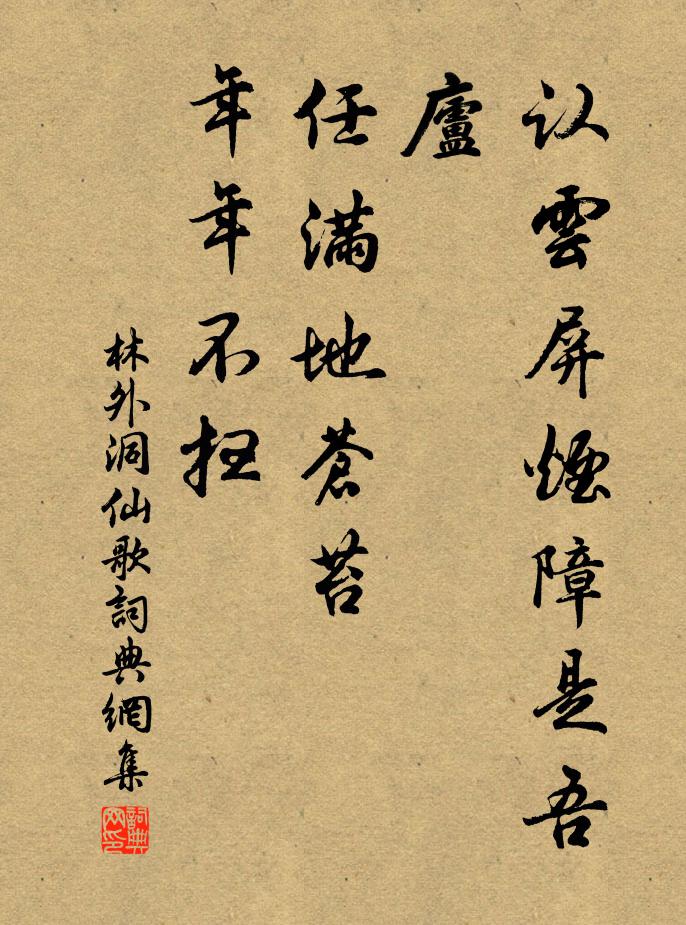 认雲屏煙障是吾
廬
任滿地蒼苔
年年不扫
林外洞仙歌詞典網集
詞典网印